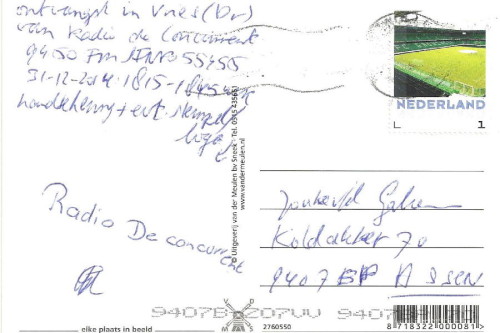 ontvangst in Vries (Dr)
van Radio de Concurrent
94.50 FM SINPO 55455
31-12-2014 1815-1845
handtekening + evt. stempel
logo
Radio De concurrent
© Uitgeverij van der Meulen bv Sneek · Tel. 0515 435661
www.vandermeulen.nl
NEDERLAND
1
Koldakker 70
9407 BP ASSEN
9407B 207VU
elke plaats in beeld
2760550
8 718322 000081